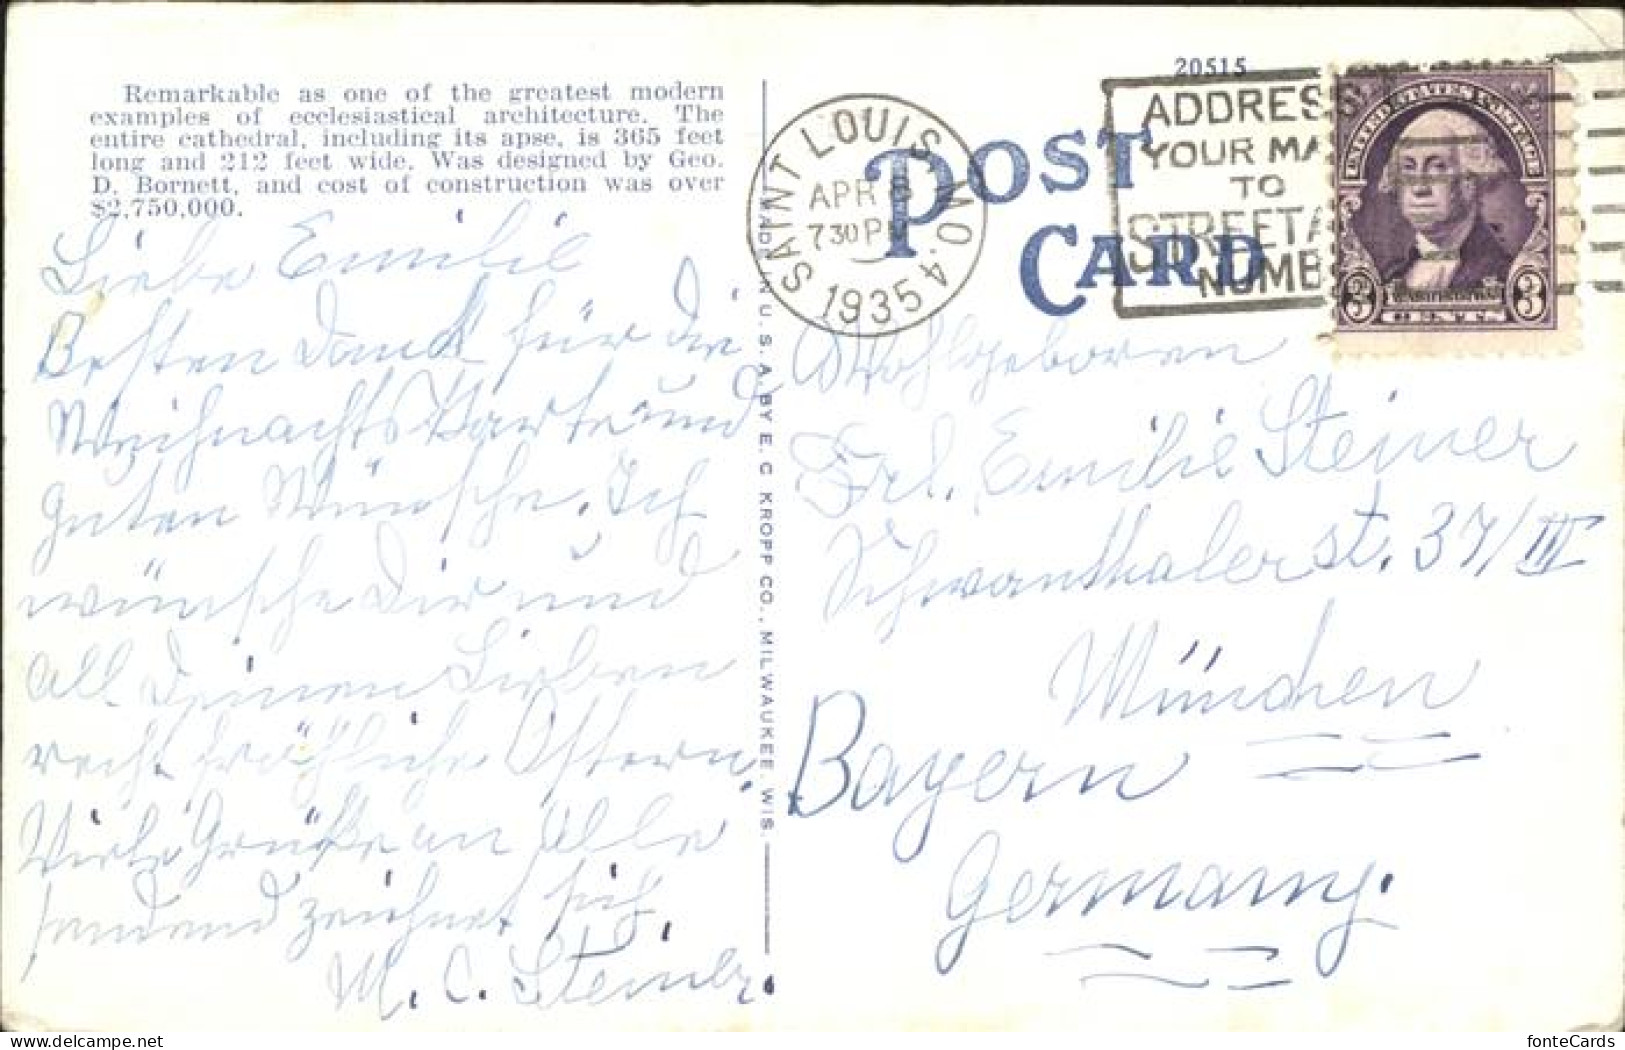 Remarkable as one of the greatest modern
examples of ecclesiastical architecture. The
entire cathedral, including its apse, is 365 feet
long and 212 feet wide. Was designed by Geo.
D. Bornett, and cost of construction was over
$2,750,000.
Liebe Emilie
Besten Dank für die
Weihnachts Karte und
guten Wünsche. Ich
wünsche Dir und
All Deinen Lieben
recht fröhliche Ostern.
Viele Grüße an Alle
sendend zeichnet sich
M. C. Steiner.
MADE IN U. S. A. BY E. C. KROPP CO., MILWAUKEE, WIS.
20515
POST
CARD
SAINT LOUIS, MO. 4
APR
730 PM
1935
ADDRESS
YOUR MA
TO
STREET A
NUMB
UNITED STATES POSTAGE
3 WASHINGTON 3
CENTS
Wohlgeboren
Frl. Emilie Steiner
Schwanthalerst. 37/III
München
Bayern
Germany.
fonteCards